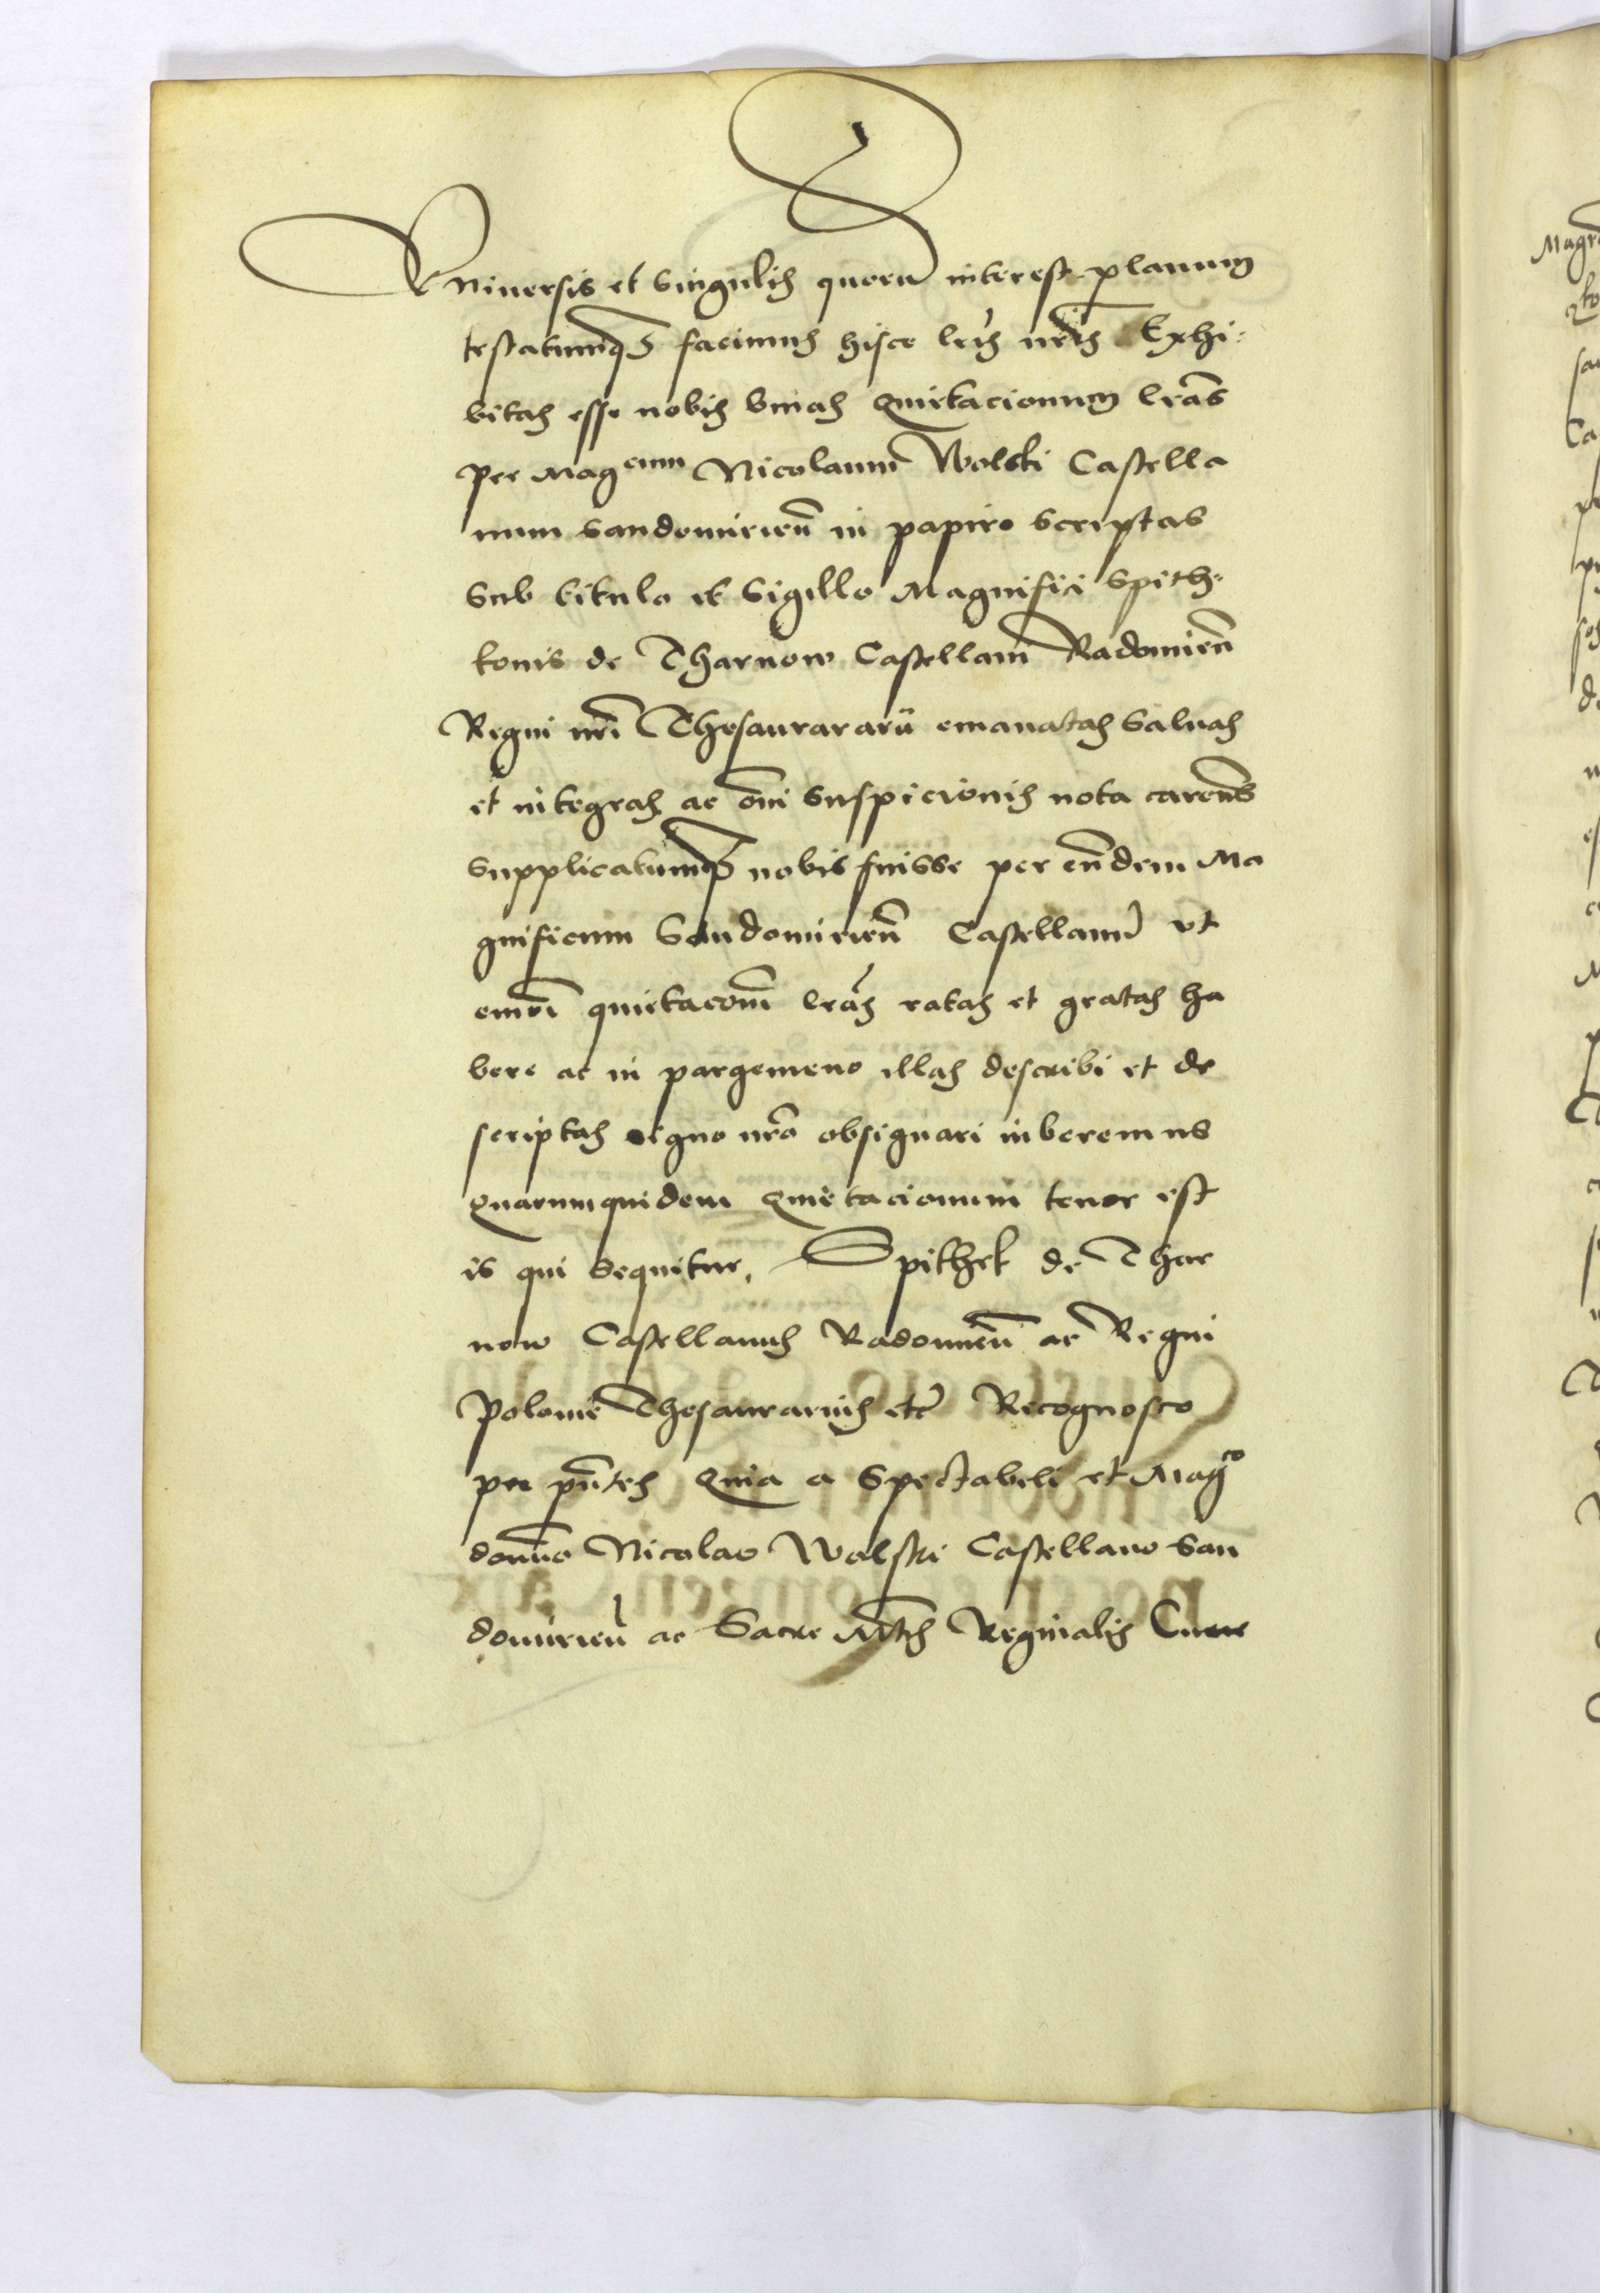 Vniuersis et Singulis quorũ interest planum
testatumq3 facimus hisce lr̃is nr̃is Exhi-
bitas esse nobis binas Quietacionum lr̃as
per Mag^cum Nicolaum Wolski Castella
num Sandomirieñ in papiro Scriptas
Sub titulo et Sigillo Magnifici Spith-
konis de Tharnow Castellani Radomieñ
Regni nr̃i Thesaurararũ emanatas Saluas
et integras ac om̃i Suspicionis nota careñs
Supplicatumq3 nobis fuisse per eũdem Ma
gnificum Sandomirieñ Castellanũ vt
em̃oi quietacom̃ lr̃as ratas et gratas ha
bere ac in pargemeno illas describi et de
scriptas signo nr̃o obsignari iuberemus
Quarumquidem Quietacionum tenor est
is qui Sequitur, Spithek de Thar
now Castellanus Radomieñ ac Regni
Polonie Thesaurarius etc̃ Recognosco
per pñtes Quia a Spectabili et Mag^co
domĩno Nicolao Wolski Castellano San
domirieñ ac Sacre Mt̃is Reginalis Curie